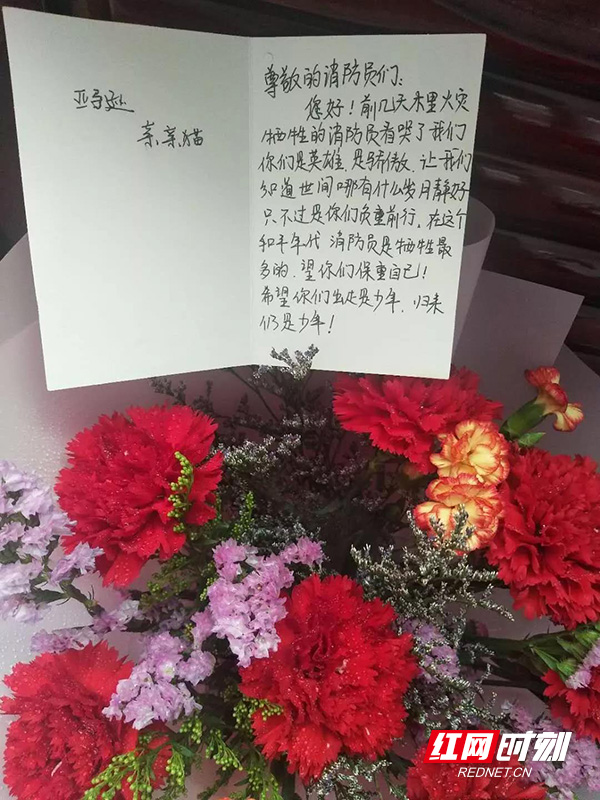 亚马逊
亲亲猫
尊敬的消防员们:
您好!前几天木里火灾
牺牲的消防员看哭了我们
你们是英雄,是骄傲,让我们
知道世间哪有什么岁月静好
只不过是你们负重前行,在这个
和平年代 消防员是牺牲最
多的,望你们保重自己!
希望你们出走是少年,归来
仍是少年!
红网时刻
REDNET.CN